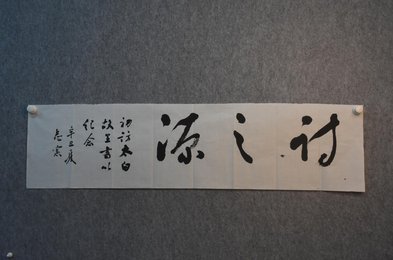 诗之源
初访太白
故里書以
纪念
辛丑夏